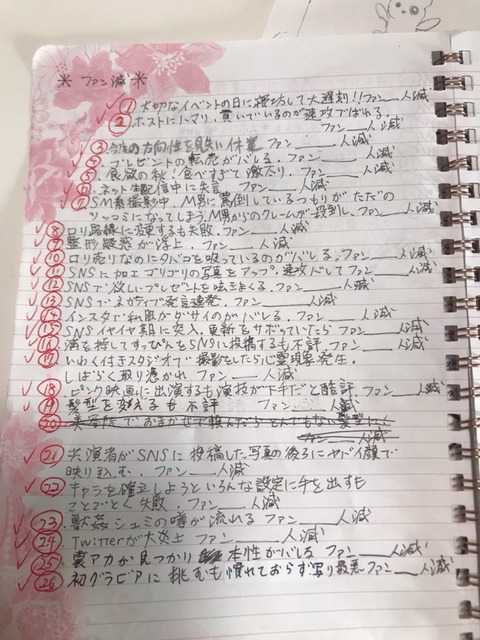 * ファン減 *
① 大切なイベントの日に寝坊して大遅刻!! ファン__人減
② ホストにハマり、貢いでいるのが速攻でばれる。
ファン__人減
③ 今後の方向性を見失い休業 ファン__人減
プレゼントの転売がバレる。ファン__人減
⑤ 食欲の秋!食べすぎて激太り。ファン__人減
⑥ ネット生配信中に失言 ファン__人減
⑦ SM系撮影中、M男に罵倒しているつもりがただの
ツッコミになってしまう、M男からのクレームが殺到し、ファン__人減
⑧ ロリ路線に変更するも失敗。ファン__人減
⑨ 整形疑惑が浮上。ファン__人減
⑩ ロリ売りなのにタバコを吸っているのがバレる。ファン__人減
⑪ SNSに加工ゴリゴリの写真をアップ。速攻バレして ファン__人減
⑫ SNSで欲しいプレゼントを呟きまくる。ファン__人減
⑬ SNSでネガティブ発言連発。ファン__人減
⑭ インスタで私服がダサイのがバレる。ファン__人減
⑮ SNSイヤイヤ期に突入、更新をサボっていたら ファン__人減
⑯ 満を持してすっぴんをSNSに投稿するも不評。ファン__人減
⑰ いわく付きスタジオで撮影をしたらに霊現象発生。
しばらく取り憑かれ ファン__人減
⑱ ピンク映画に出演するも演技が下手だと酷評。ファン__人減
⑲ 髪型を変えるも不評 ファン__人減
⑳ 美容室でおまかせで頼んだらとんでもない髪型に
ファン__人減
㉑ 共演者がSNSに投稿した写真の後ろにヤバイ顔で
映り込む。ファン__人減
㉒ キャラを確立しようといろんな設定に手を出すも
ことごとく失敗。ファン__人減
㉓ 獣姦シュミの噂が流れる ファン__人減
㉔ Twitterが大炎上 ファン__人減
㉕ 裏アカが見つかり 本性がバレる ファン__人減
㉖ 初グラビアに挑むも慣れておらず写り最悪 ファン__人減